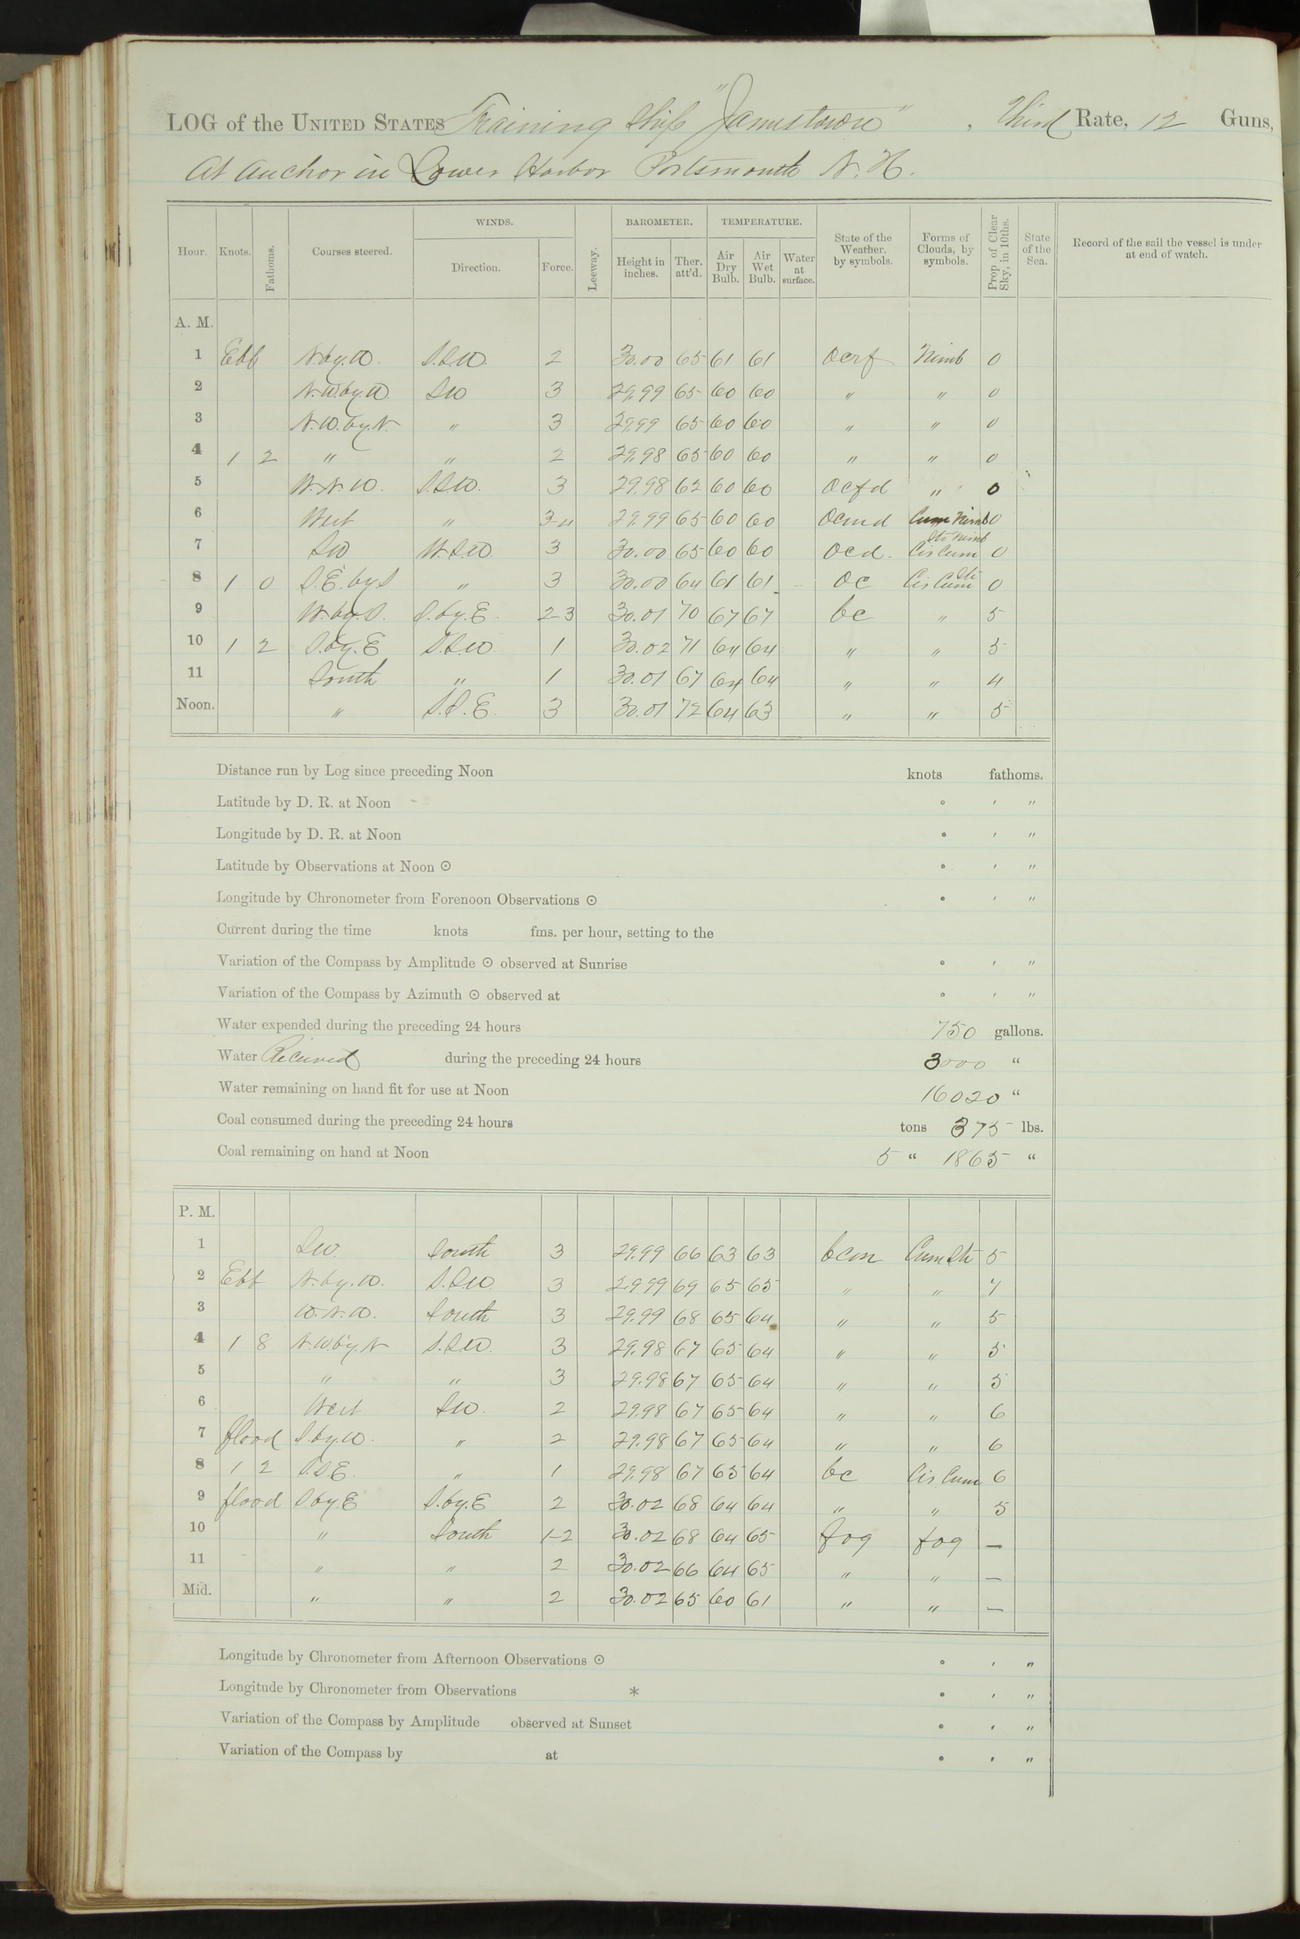 LOG of the UNITED STATES Training Ship "Jamestown", Third Rate, 12 Guns,
At Anchor in Lower Harbor Portsmouth N.H.
Hour. Knots. Fathoms. Courses steered. WINDS. Direction. Force. Leeway. BAROMETER. Height in inches. Ther. att'd. TEMPERATURE. Air Dry Bulb. Air Wet Bulb. Water at surface. State of the Weather, by symbols. Forms of Clouds, by symbols. Prop. of Clear Sky, in 10ths. State of the Sea. Record of the sail the vessel is under at end of watch.
A. M.
1 Ebb N.by.W. S.S.W. 2 30.00 65 61 61 ocrf Nimb 0
2 N.W.by.W. SW 3 29.99 65 60 60 " " 0
3 N.W.by.N. " 3 29.99 65 60 60 " " 0
4 1 2 " " 2 29.98 65 60 60 " " 0
5 W.N.W. S.S.W. 3 29.98 62 60 60 ocfd " 0
6 West " 3-4 29.99 65 60 60 ocmd Cum Nimb 0
7 SW W.S.W. 3 30.00 65 60 60 ocd. Str Nimb Cir Cum 0
8 1 0 S.E.by.S " 3 30.00 64 61 61 oc Cir Cum Str 0
9 W.by.S. S.by.E. 2-3 30.01 70 67 67 bc " 5
10 1 2 S.by.E S.S.W. 1 30.02 71 64 64 " " 5
11 South " 1 30.01 67 64 64 " " 4
Noon. " S.S.E. 3 30.01 72 64 63 " " 5
Distance run by Log since preceding Noon knots fathoms.
Latitude by D. R. at Noon ° ' "
Longitude by D. R. at Noon ° ' "
Latitude by Observations at Noon ☉ ° ' "
Longitude by Chronometer from Forenoon Observations ☉ ° ' "
Current during the time knots fms. per hour, setting to the
Variation of the Compass by Amplitude ☉ observed at Sunrise ° ' "
Variation of the Compass by Azimuth ☉ observed at ° ' "
Water expended during the preceding 24 hours 750 gallons.
Water Received during the preceding 24 hours 3000 "
Water remaining on hand fit for use at Noon 16020 "
Coal consumed during the preceding 24 hours tons 375 lbs.
Coal remaining on hand at Noon 5 " 1865 "
P. M.
1 SW South 3 29.99 66 63 63 bcm Cum Str 5
2 Ebb N.by.W. S.SW. 3 29.99 69 65 65 " " 7
3 W.N.W. South 3 29.99 68 65 64 " " 5
4 1 8 N.W.by.N S.S.W. 3 29.98 67 65 64 " " 5
5 " " 3 29.98 67 65 64 " " 5
6 West SW. 2 29.98 67 65 64 " " 6
7 flood S.by.W. " 2 29.98 67 65 64 " " 6
8 1 2 S.S.E. " 1 29.98 67 65 64 bc Cir Cum 6
9 flood S by.E S.by.E 2 30.02 68 64 64 " " 5
10 " South 1-2 30.02 68 64 65 fog fog —
11 " " 2 30.02 66 64 65 " " —
Mid. " " 2 30.02 65 60 61 " " —
Longitude by Chronometer from Afternoon Observations ☉ ° ' "
Longitude by Chronometer from Observations * ° ' "
Variation of the Compass by Amplitude observed at Sunset ° ' "
Variation of the Compass by at ° ' "